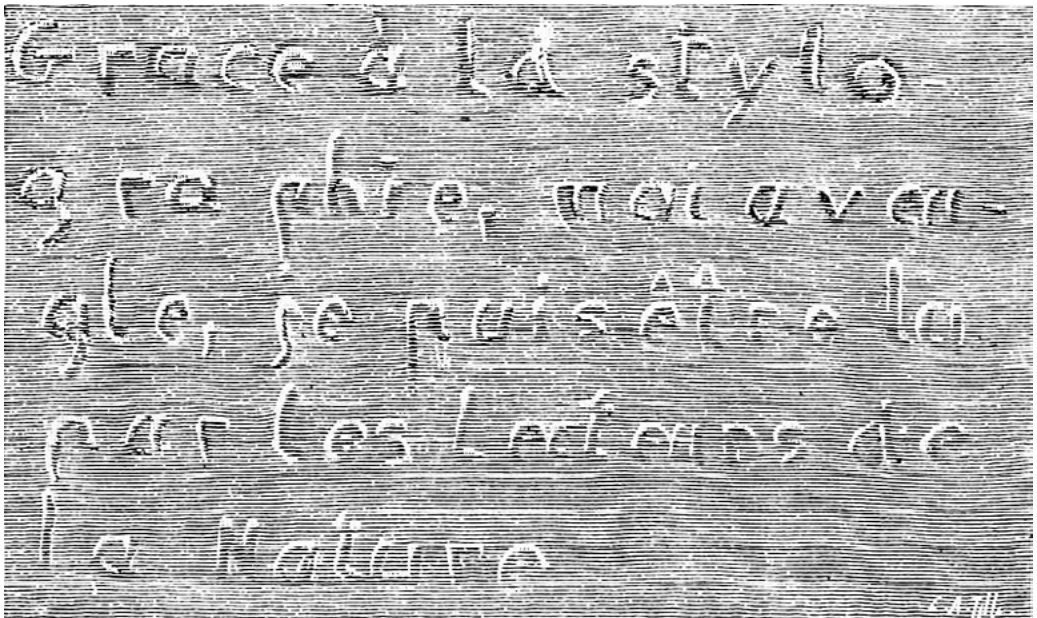 Grâce à la stylo
graphie, moi aveu-
gle, je puis être lu
par les Lecteurs de
la Nature